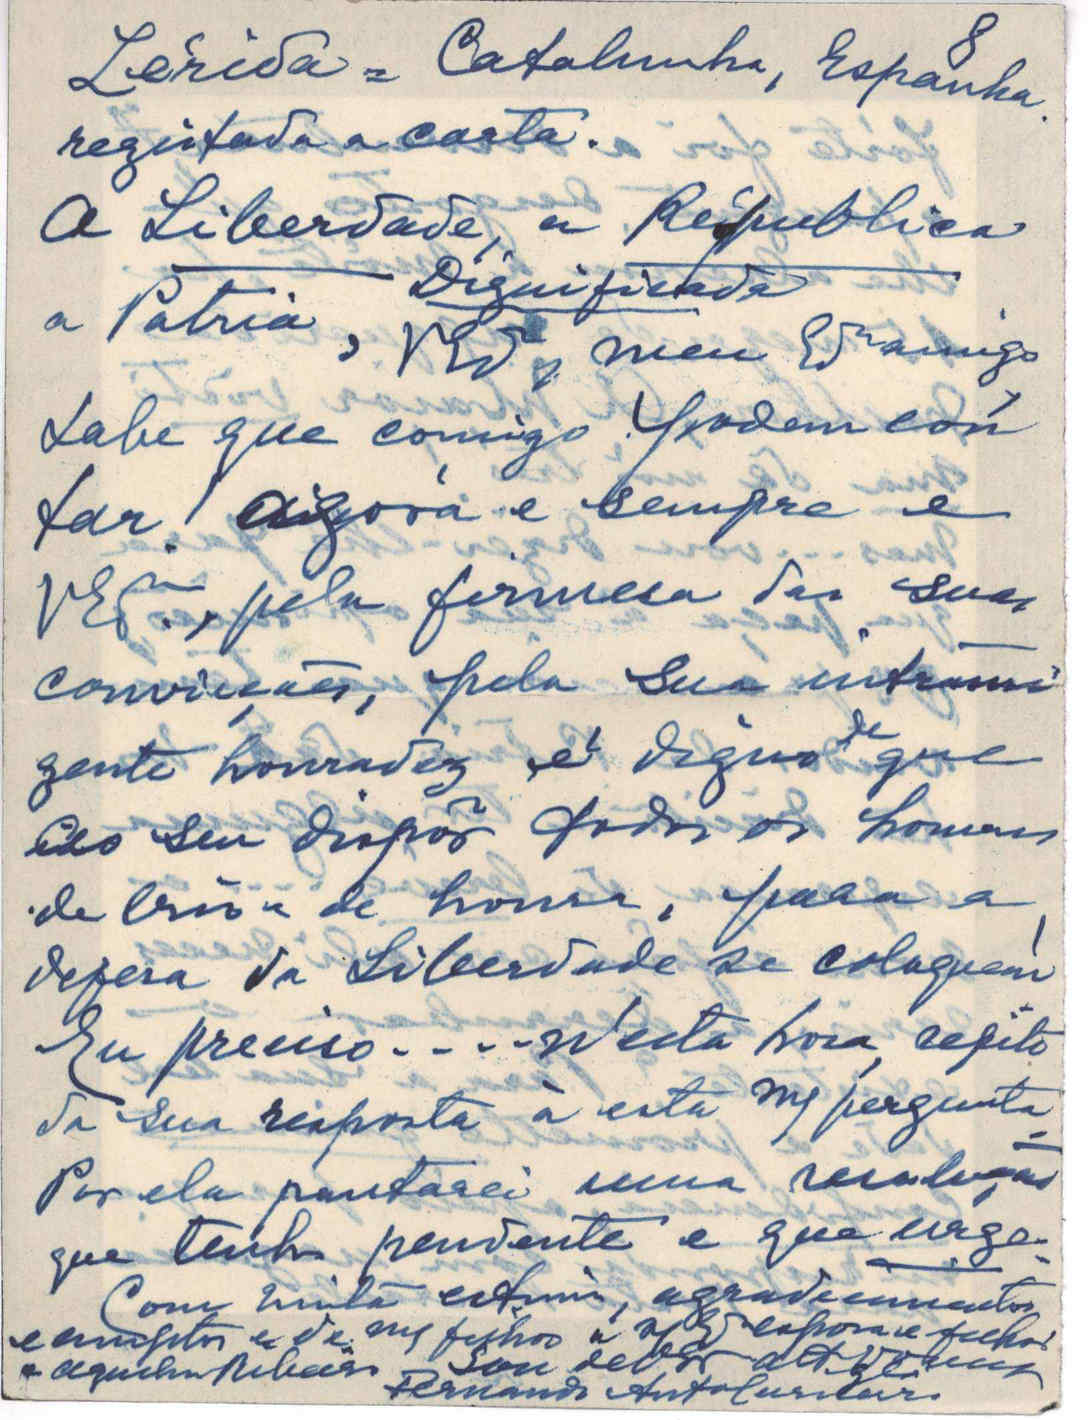 8
Lérida = Catalunha, Espanha.
registada a carta.
A Liberdade, a Républica
Dignificada
a Patria, VEx.ª, meu Ex.mo amigo
sabe que comigo podem con
tar! agora e sempre e
VEx.ª, pela firmesa das suas
convicções, pela sua intransi
gente honradez é digno de que
ao seu dispôr todos os homens
de brio e de honra, para a
defesa da Liberdade se coloquem
Eu preciso.....n'esta hora, repito
da sua resposta à esta mª pergunta.
Por ela pautarei uma resolução
que tenho pendente e que urge.
Com muita estima, agradecimentos
e de meus filhos a esposa e filhos
Sou de
Fernando